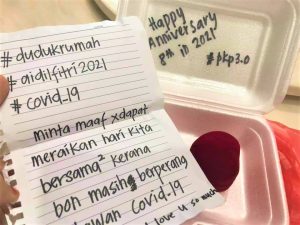 #dudukrumah
#aidilfitri2021
#covid_19
minta maaf xdapat
meraikan hari kita
bersama² kerana
boh masih berperang
lawan covid.19
I love u so much
Happy
Anniversary
8th in 2021
#pkp3.0